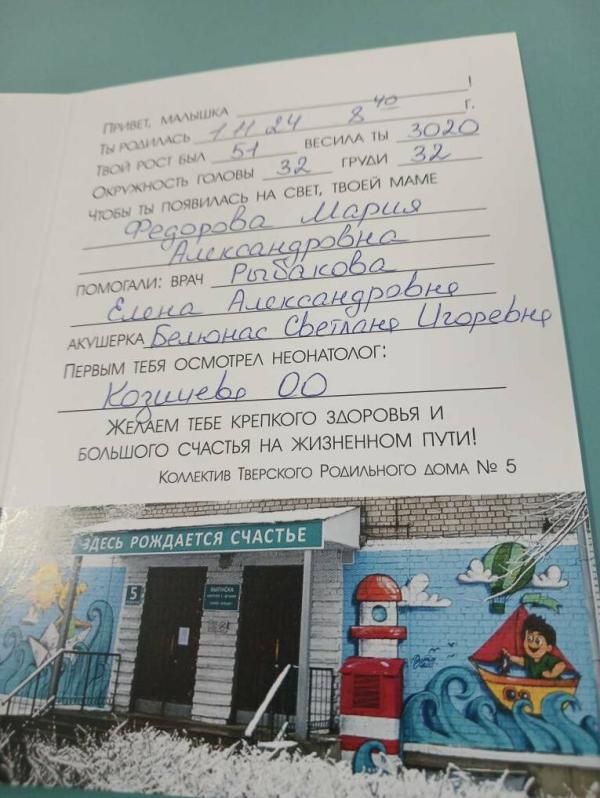 Привет, малышка !
Ты родилась 1 11 24 8 40 г.
Твой рост был 51 весила ты 3020
Окружность головы 32 груди 32
Чтобы ты появилась на свет, твоей маме
Федорова Мария
Александровна
помогали: врач Рыбакова
Елена Александровна
акушерка Белюнас Светлана Игоревна
Первым тебя осмотрел неонатолог:
Козичева ОО
Желаем тебе крепкого здоровья и
большого счастья на жизненном пути!
Коллектив Тверского Родильного дома № 5
ЗДЕСЬ РОЖДАЕТСЯ СЧАСТЬЕ
5
ВЫПИСКА